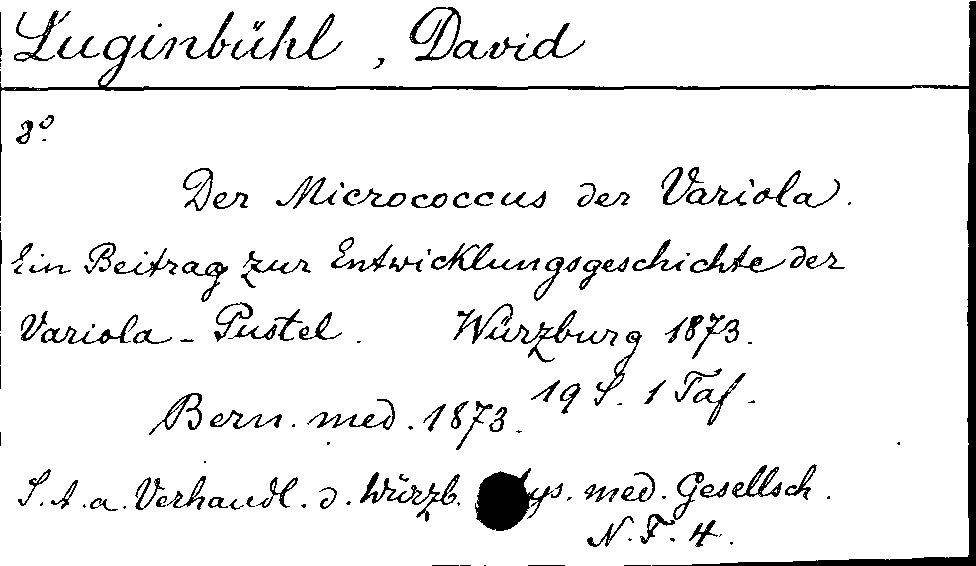 Luginbühl, David
8°.
Der Micrococcus der Variola.
Ein Beitrag zur Entwicklungsgeschichte der
Variola-Pustel. Würzburg 1873.
19 S. 1 Taf.
Bern. med. 1873.
S. A. a. Verhandl. d. Würzb. med. Gesellsch.
N. F. 4.